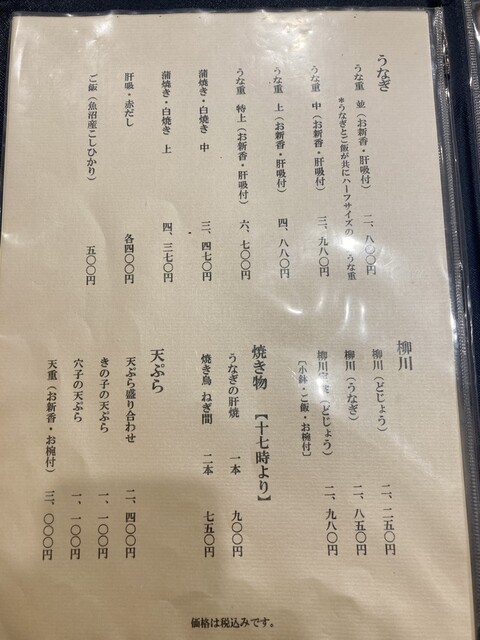 うなぎ
うな重 並（お新香・肝吸付） 二、八〇〇円
＊うなぎとご飯が共にハーフサイズの うな重
うな重 中（お新香・肝吸付） 三、九八〇円
うな重 上（お新香・肝吸付） 四、八八〇円
うな重 特上（お新香・肝吸付） 六、七〇〇円
蒲焼き・白焼き 中 三、四七〇円
蒲焼き・白焼き 上 四、三七〇円
肝吸・赤だし 各四〇〇円
ご飯（魚沼産こしひかり） 五〇〇円
柳川
柳川（どじょう） 二、二五〇円
柳川（うなぎ） 二、八五〇円
柳川 （どじょう） 二、九八〇円
〔小鉢・ご飯・お椀付〕
焼き物 【十七時より】
うなぎの肝焼 一本 九〇〇円
焼き鳥 ねぎ間 二本 七五〇円
天ぷら
天ぷら盛り合わせ 二、四〇〇円
きの子の天ぷら 一、一〇〇円
穴子の天ぷら 一、一〇〇円
天重（お新香・お椀付） 三、〇〇〇円
価格は税込みです。